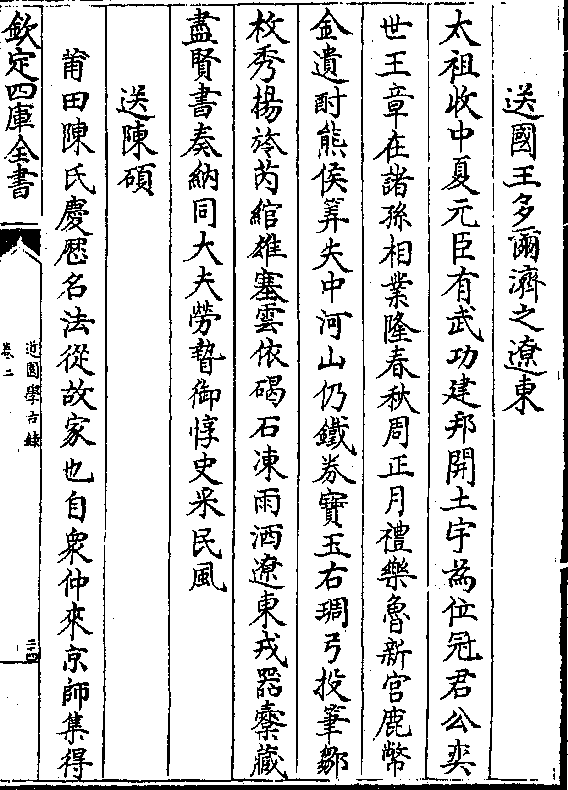 送國王多爾濟之遼東
太祖收中夏元臣有武功建邦開土宇茅位冠君公奕
世王章在諸孫相業隆春秋周正月禮樂魯新宮鹿幣
金遺酎熊侯筭失中河山仍鐵券寳玉右琱弓投筆鄒
枚秀揚旍芮綰雄塞雲依碣石凍雨洒遼東戎器櫜藏
盡賢書奏納同大夫勞贄御惇史采民風
送陳碩
莆田陳氏慶厯名法從故家也自衆仲來京師集得
欽定四庫全書
道園學古録
卷二
二四